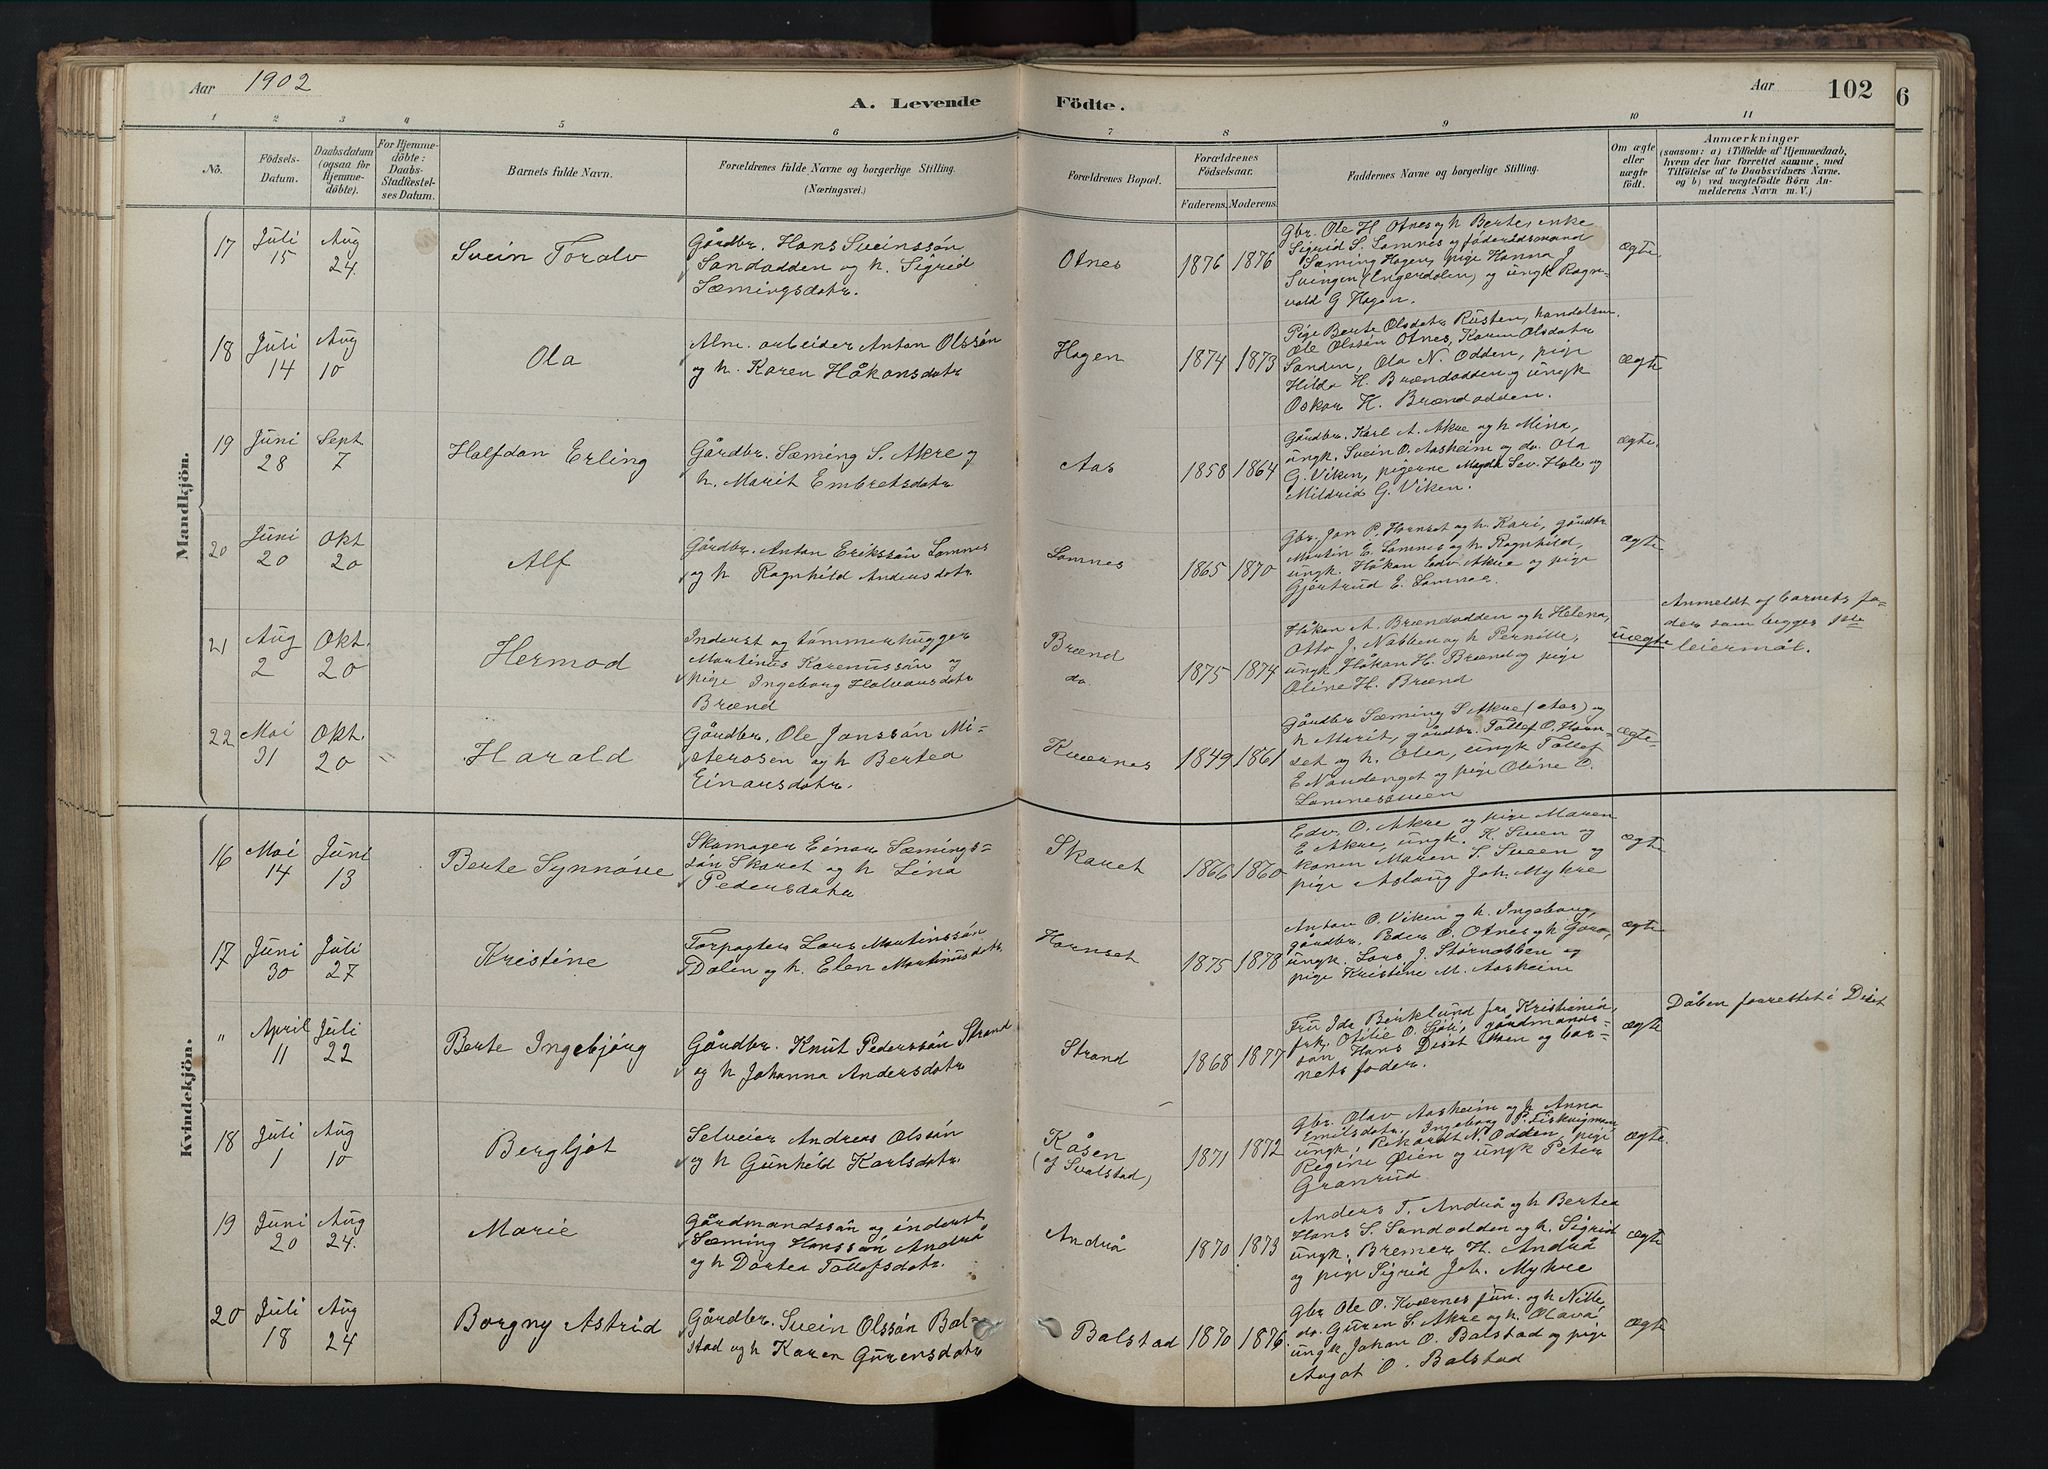 Aar 1902
A. Levende Födte.
Aar 102
6
1 2 3 4 5 6 7 8 9 10 11
No.
Födsels-
Datum.
Daabsdatum
(ogsaa for
Hjemme-
döbte).
For Hjemme-
döbte:
Daabs-
Stadfæstel-
ses Datum.
Barnets fulde Navn.
Forældrenes fulde Navne og borgerlige Stilling.
(Næringsvei.)
Forældrenes Bopæl.
Forældrenes
Födselsaar.
Faderens. Moderens.
Faddernes Navne og borgerlige Stilling.
Om ægte
eller
uægte
födt.
Anmærkninger
(saasom: a) i Tilfælde af Hjemmedaab,
hvem der har forrettet samme, med
Tilföielse af to Daabsvidners Navne.
og b) ved uægtefödte Börn An-
melderens Navn m. V.)
Mandkjön.
17 Juli 15 Aug 24
Svein Toralv
Gårdbr. Hans Sveinssön
Sandodden og h. Sigrid
Sæmingsdatr.
Otnes
1876 1876
Gbr. Ole H. Otnes og h Berte, enke
Sigrid S. Lomnes og föderådsmand
Sæming Hagen, pige Hanna J.
Svingen (Engerdalen) og ungk Ragn-
vald G Hagen.
ægte
18 Juli 14 Aug 10
Ola
Alm. arbeider Anton Olssön
og h. Karen Håkonsdatr
Hagen
1874 1873
Pige Berte Olsdatr Rusten, handelsm.
Ole Olssön Otnes, Karen Olsdatr
Sanden, Ola N. Odden, pige
Hilda H. Brændodden og ungk
Oskar H. Brændodden.
ægte
19 Juni 28 Sept 7
Halfdan Erling
Gårdbr. Sæming S. Akre og
h. Marit Embretsdatr
Aas
1858 1864
Gårdbr. Karl A. Akre og h Mina,
ungk. Svein O. Aasheim og do. Ola
G. Viken, pigerne Magda Sev. Hole og
Mildrid G. Viken.
ægte.
20 Juni 20 Okt 20
Alf
Gårdbr. Anton Erikssön Lomnes
og h Ragnhild Andersdatr
Lomnes
1865 1870
Gbr. Jon P. Hornset og h. Kari, gårdbr
Martin E. Lomnes og h. Ragnhild,
ungk. Håkon Edv. Akre og pige
Gjertrud E. Lomnes.
ægte
21 Aug 2 Okt. 20
Hermod
Inderst og tömmerhugger
Martinus Karenussön og
pige Ingeborg Halvorsdatr
Brænd
Brænd
do.
1875 1874
Håkon A. Brændodden og h Helena,
Otto J. Nabben og h Pernille,
ungk. Håkon H. Brænd og pige
Oline H. Brænd
uægte
Anmeldt af barnets fa-
der som begges 1ste
leiermål.
22 Mai 31 Okt. 20 "
Harald
Gårdbr. Ole Jonssön Mi-
sterosen og h Bertea
Einarsdatr.
Kværnes
1849 1861
Gårdbr Sæming S Akre (Aas) og
h Marit, gårdbr. Tollef O. Horn-
set og h. Olea, ungk Tollef
E Nordenget og pige Oline O.
Lomnessveen
ægte
Kvindekjön.
16 Mai 14 Juni 13
Berte Synnöve
Skomager Einar Sæmings-
sön Skaret og h Lina
Pedersdatr
Skaret
1866 1860
Edv. O. Akre og pige Maren
E Akre, ungk. K. Sveen og
konen Maren S. Sveen og
pige Aslaug Joh. Mykre
ægte
17 Juni 30 Juli 27
Kristine
Forpagter Lars Martinssön
Dalen og h. Elen Martinusdatr
Hornset
1875 1878
Anton O. Viken og h. Ingeborg,
gårdbr. Peder O. Otnes og h Goro,
ungk. Lars J. Störnabben og
pige Kristine M. Aasheim
ægte
" April 11 Juli 22
Berte Ingebjörg
Gårdbr. Knut Pederssön Strand
og h Johanna Andersdatr
Strand
1868 1877
Fru Ida Berklund fra Kristiania,
frk. Otilie O. Sjöli, gårdmands-
sön Hans Diset Moen og bar-
nets fader.
ægte
Dåben forrettet i Diset
18 Juli 1 Aug 10
Bergljot
Selveier Andreas Olssön
og h Gunhild Karlsdatr
Kåsen
(af Svalstad)
1871 1872
Gbr. Olav Aasheim og h Anna
Emilsdatr, Ingeborg P.
ungk. Rikardt N. Odden, pige
Regine Öien og ungk Peter
Granrud
ægte
19 Juni 20 Aug 24.
Marie
Gårdmandssön og inderst
Sæming Hanssön Andraa
og h Dortea Tollefsdatr.
Andrå
1870 1873
Anders T. Andrå og h Bertea
Hans S. Sandodden og h. Sigrid
ungk. Bremer H. Andrå
og pige Sigrid Joh. Mykre
ægte
20 Juli 18 Aug 24
Borgny Astrid
Gårdbr. Svein Olssön Bal-
stad og h Karen Gurensdatr
Balstad
1870 1876
Gbr Ole O. Kværnes jun. og h Nille,
do. Guren S. Akre og h. Olava,
ungk Johan O. Balstad og pige
Aagot O. Balstad
ægte